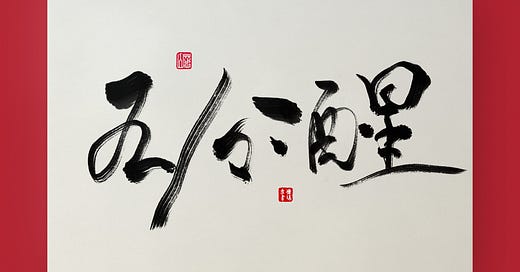 五分醒